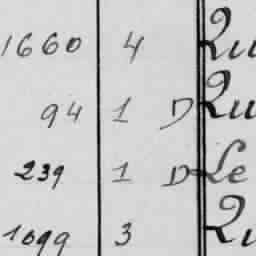 1660 4 Qu
94 1 D Qu
239 1 D Le
1099 3 Qu